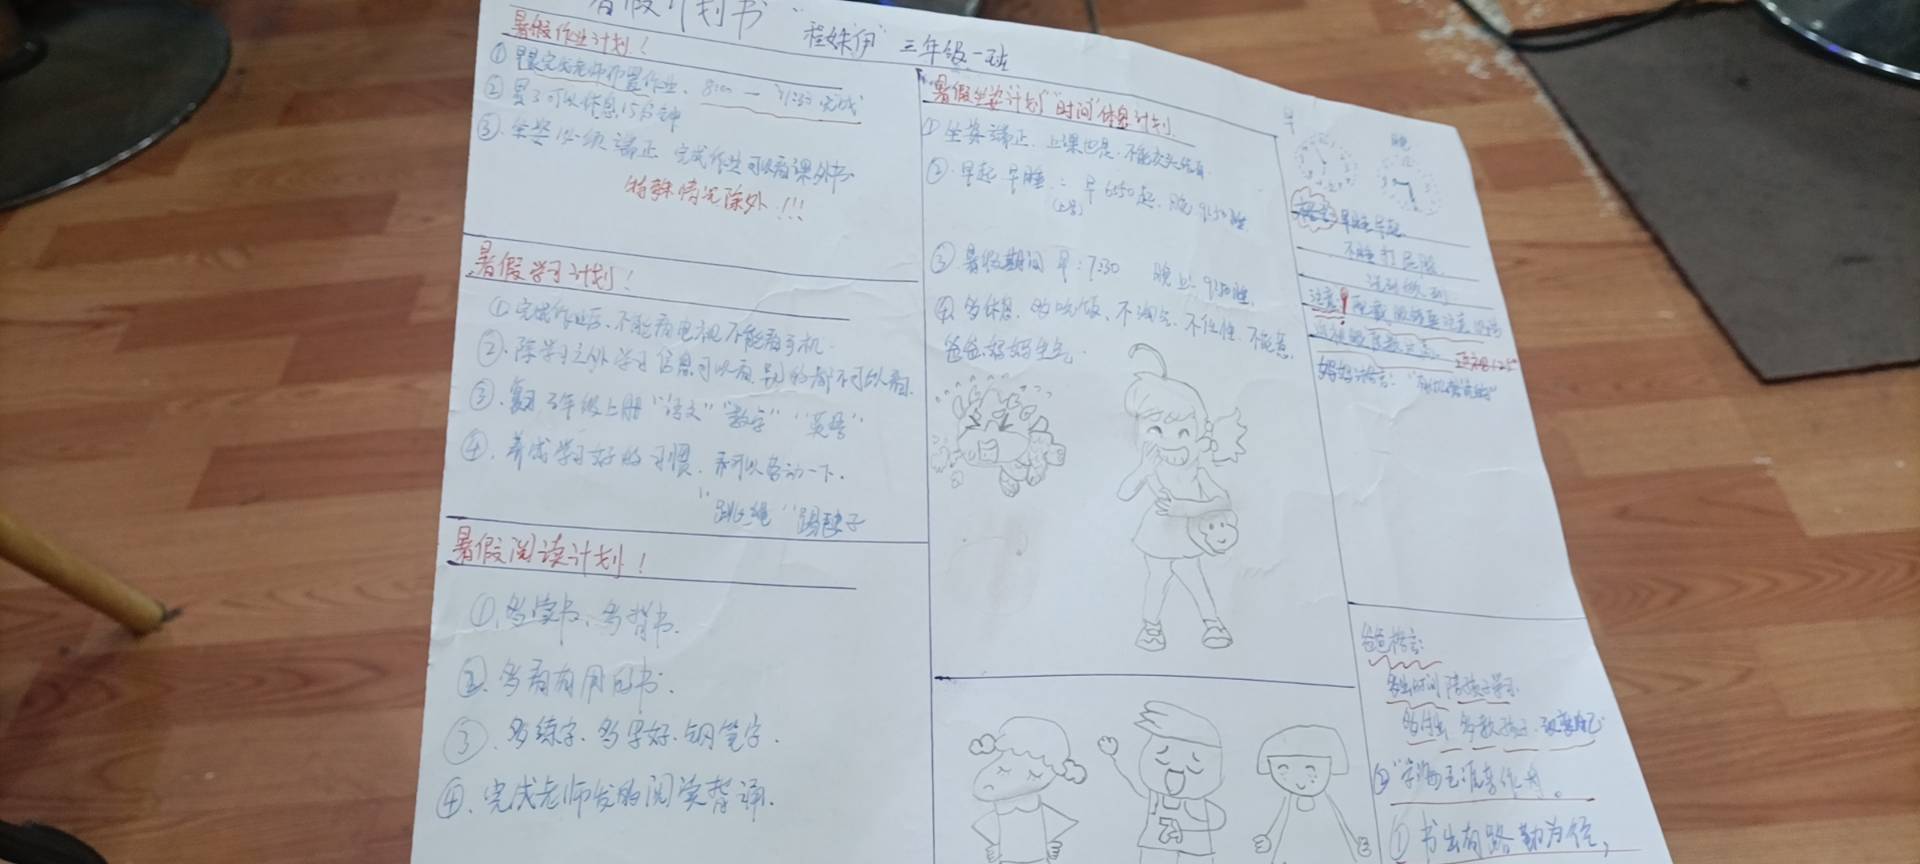 暑假计划书 "程姝伊" 三年级一班
暑假作业计划！
① 早晨完成老师布置作业. 8:00 — 11:30 完成
② 累了可以休息15分钟
③. 坐姿必须端正 完成作业可以看课外书.
特殊情况除外.!!!
暑假学习计划！
① 完成作业后、不能看电视不能看手机.
②. 除学习之外学习信息可以看.别的都不可以看.
③. 复习3年级上册"语文""数学""英语"
④. 养成学习好的习惯. 可以劳动一下.
"跳绳""踢毽子
暑假阅读计划！
①. 多读书、多背书.
②. 多看有用的书.
③. 多练字. 多写好. 钢笔字.
④. 完成老师发的阅读背诵.
暑假坐姿计划"时间"休息计划.
① 坐姿端正. 上课也是. 不能
②. 早起早睡. 早6:50起. 晚9:30睡.
(上学)
③ 暑假期间 早:7:30 晚上9:30睡.
④. 多休息. 多吃饭、不淘气. 不任性. 不能惹.
爸爸妈妈生气.
早
晚
早睡早起.
说到做到.
注意！
妈妈
爸爸格言:
多出时间陪孩子学习.
多付出 多教孩子.
② "学海无涯苦作舟.
① 书山有路勤为径,